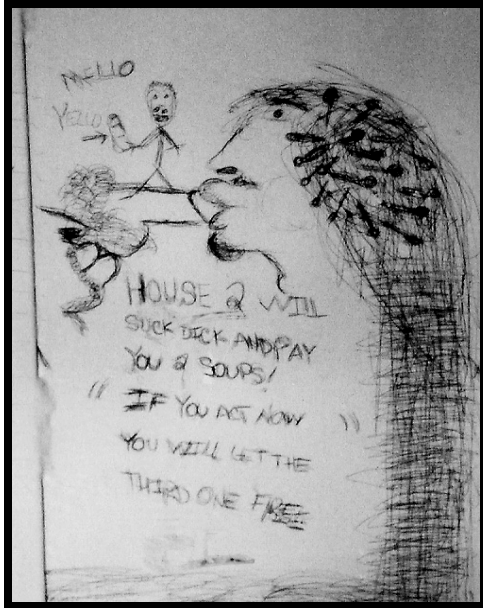 MELLO
YELLO
HOUSE 2 WILL
SUCK DICK AND PAY
YOU 2 SOUPS!
"IF YOU ACT NOW"
YOU WILL GET THE
THIRD ONE FREE